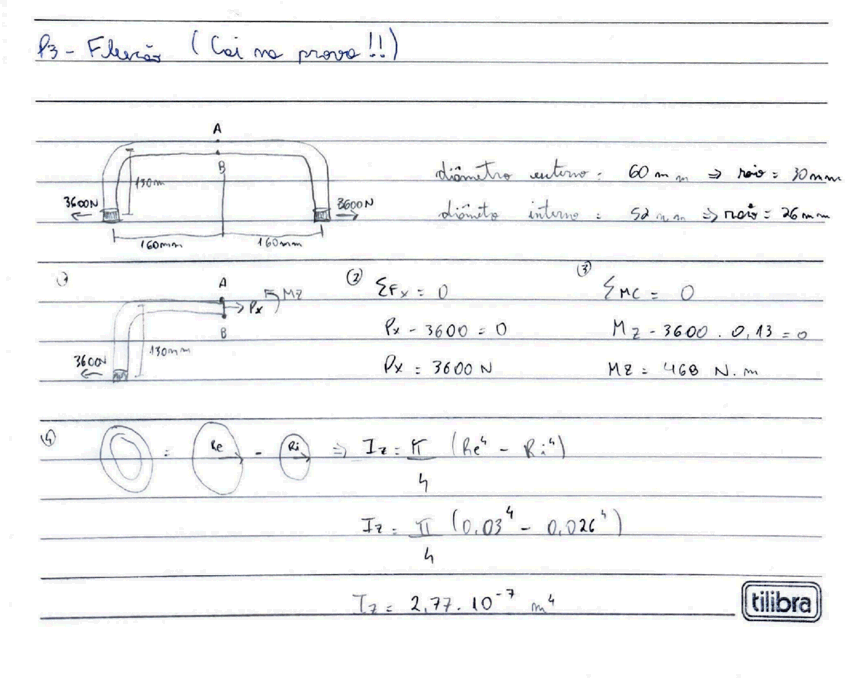 P3 - Flexão (Cai na prova!!)
A
B
130m
3600N
3600N
160mm
160mm
diâmetro externo = 60 mm ⇒ raio = 30mm
diâmeto interno = 52 mm ⇒ raio = 26 mm
1)
A
Px
Mz
B
130mm
3600N
2) ΣFx = 0
Px - 3600 = 0
Px = 3600 N
3) ΣMC = 0
Mz - 3600 . 0,13 = 0
Mz = 468 N.m
4) = Re - Ri ⇒ Iz = π/4 (Re⁴ - Ri⁴)
Iz = π/4 (0,03⁴ - 0,026⁴)
Iz = 2,77 . 10⁻⁷ m⁴
tilibra